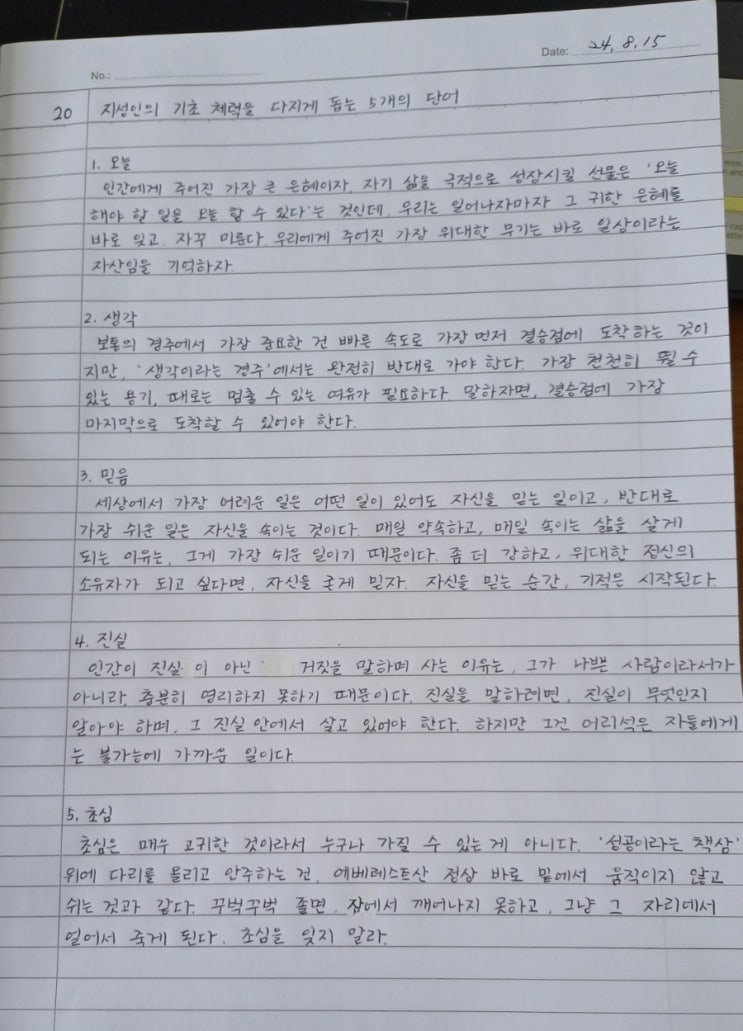 No.:
Date: 24, 8, 15
20 지성인의 기초 체력을 다지게 돕는 5개의 단어
1. 오늘
인간에게 주어진 가장 큰 은혜이자, 자기 삶을 극적으로 성장시킬 선물은 '오늘
해야 할 일을 오늘 할 수 있다'는 것인데, 우리는 일어나자마자 그 귀한 은혜를
바로 잊고, 자꾸 미룬다. 우리에게 주어진 가장 위대한 무기는 바로 일상이라는
자산임을 기억하자.
2. 생각
보통의 경주에서 가장 중요한 건 빠른 속도로 가장 먼저 결승점에 도착하는 것이
지만, '생각이라는 경주'에서는 완전히 반대로 가야 한다. 가장 천천히 뛸 수
있는 용기, 때로는 멈출 수 있는 여유가 필요하다 말하자면, 결승점에 가장
마지막으로 도착할 수 있어야 한다.
3. 믿음
세상에서 가장 어려운 일은 어떤 일이 있어도 자신을 믿는 일이고, 반대로
가장 쉬운 일은 자신을 속이는 것이다. 매일 약속하고, 매일 속이는 삶을 살게
되는 이유는, 그게 가장 쉬운 일이기 때문이다. 좀 더 강하고, 위대한 정신의
소유자가 되고 싶다면, 자신을 굳게 믿자. 자신을 믿는 순간, 기적은 시작된다.
4. 진실
인간이 진실 이 아닌 거짓을 말하며 사는 이유는, 그가 나쁜 사람이라서가
아니라, 충분히 영리하지 못하기 때문이다. 진실을 말하려면, 진실이 무엇인지
알아야 하며, 그 진실 안에서 살고 있어야 한다. 하지만 그건 어리석은 자들에게
는 불가능에 가까운 일이다.
5. 초심
초심은 매우 고귀한 것이라서 누구나 가질 수 있는 게 아니다. '성공이라는 책상'
위에 다리를 올리고 안주하는 건, 에베레스트산 정상 바로 밑에서 움직이지 않고
쉬는 것과 같다. 꾸벅꾸벅 졸면, 잠에서 깨어나지 못하고, 그냥 그 자리에서
얼어서 죽게 된다. 초심을 잊지 말라.